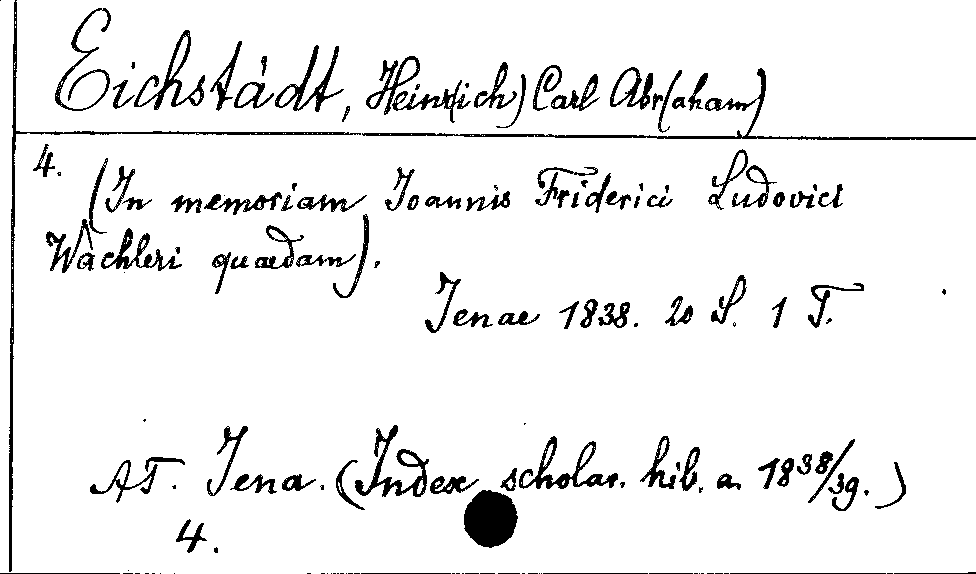 Eichstädt, Heinr(ich) Carl Abr(aham)
4.
(In memoriam Ioannis Friderici Ludovici
Wachleri quaedam).
Jenae 1838. 20 S. 1 T.
AT. Jena. (Index scholar. hib. a. 1838/39.)
4.